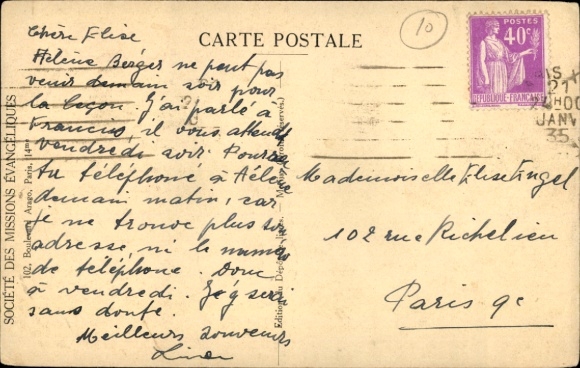 Chère Elise
Hélène Berger ne peut pas
venir demain soir pour
la leçon. J'ai parlé à
Francis, il vous attend
vendredi soir. Pourrais
tu téléphoné à Hélène
demain matin, car
je ne trouve plus son
adresse, ni le numéro
de téléphone. Donc
à vendredi. J'y serai
sans doute.
Meilleurs souvenirs
CARTE POSTALE
10
POSTES
40c
REPUBLIQUE FRANÇAISE
21
JANV
35
Mademoiselle Elise Engel
102 rue Richelieu
Paris 9e
SOCIÉTÉ DES MISSIONS ÉVANGÉLIQUES
102, Boulevard Arago, Paris (14me)